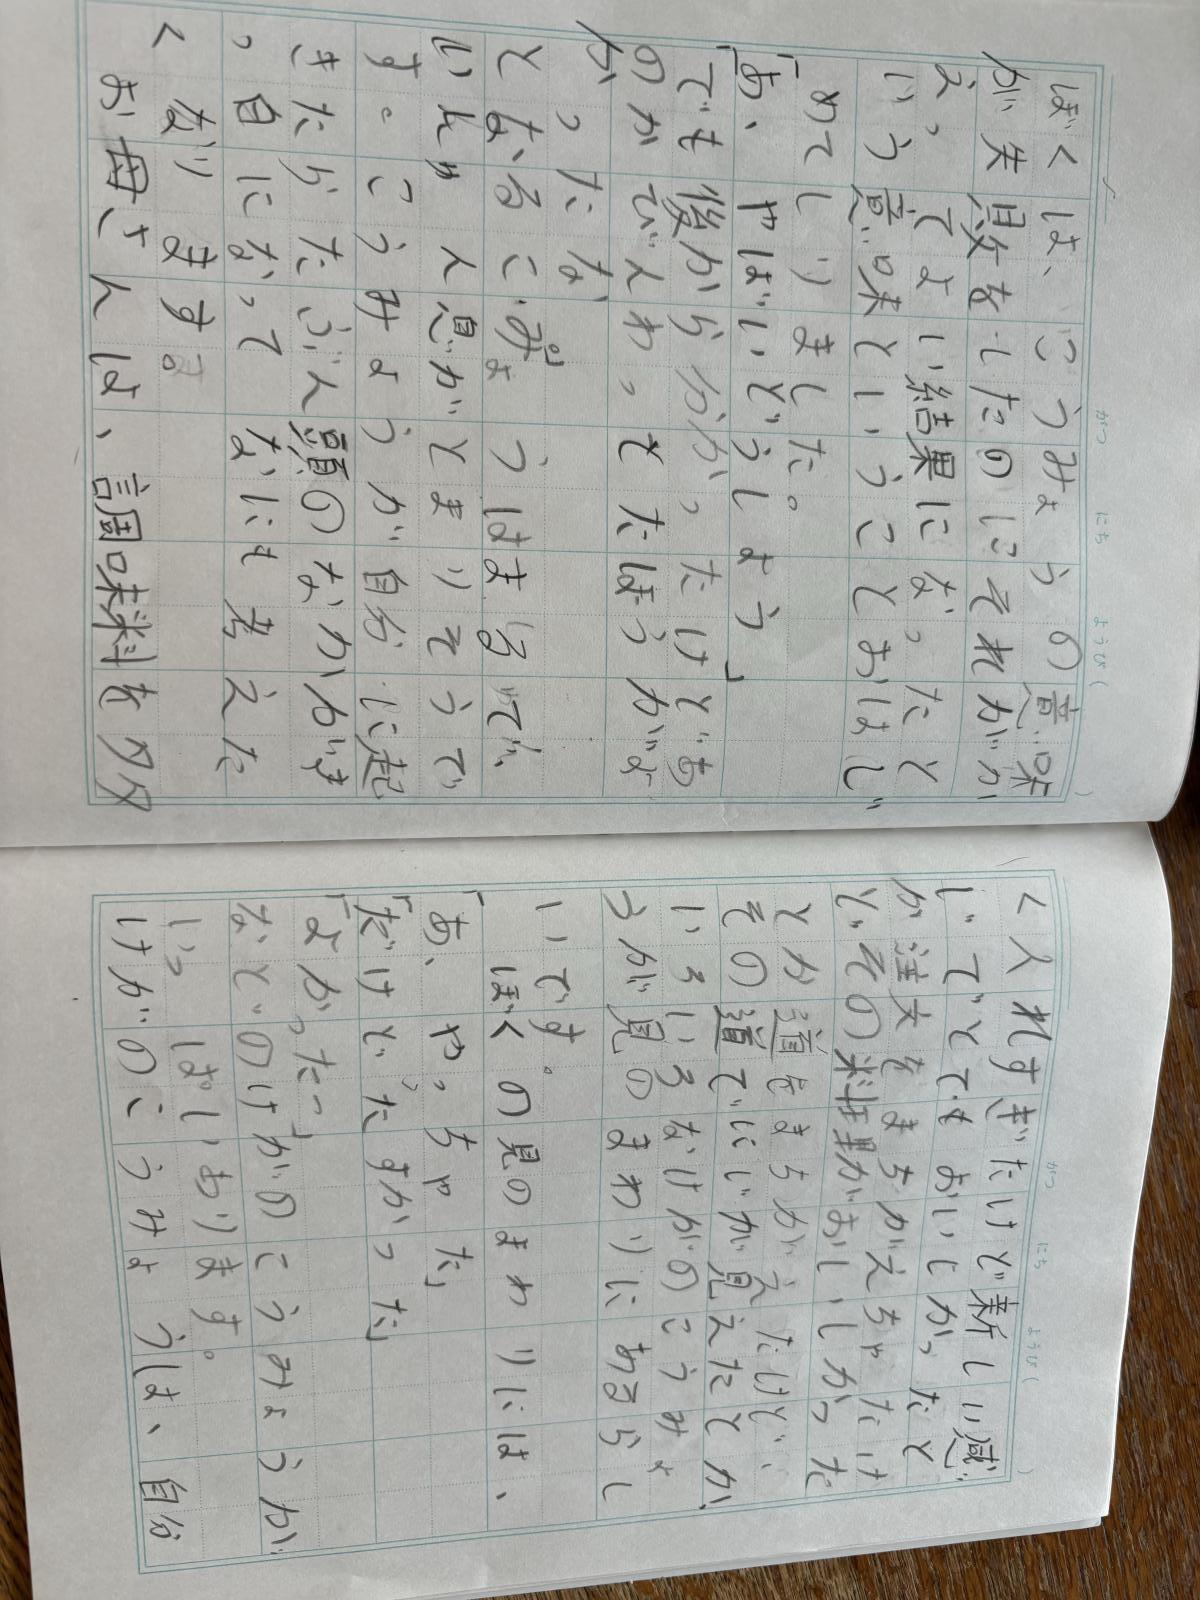 がつ にち ようび( )
ぼくは、こうみょうの意味
が失敗をしたのにそれがか
えってよい結果になったと
いう意味ということおはじ
めてしりました。
「あ、やばいどうしよう」
でも後から分かったけどあ
のかびんわってたほうがよ
かったな」
となるこみょうはまるで、
息がとまりそうで
す。こうみょうが自分に起
きたらたぶん頭のなかがま
っ白になってなにも考えた
くなります
お母さんは、調味料を多
がつ にち ようび( )
く入れすぎたけど新しい感
じでとてもおいしかったと
か注文をまちがえちゃたけ
ど、その料理がおいしかった
とか道をまちがえたけど、
その道でにじが見えたとか、
いろいろなけがのこうみょ
うが見のまわりにあるらし
いです。
ぼくの見のまわりには、
「あ、やっちゃた」
「だけど、たすかった」
「よかったっ」
などのけがのこうみょうが
いっぱいあります。
けがのこうみょうは、自分